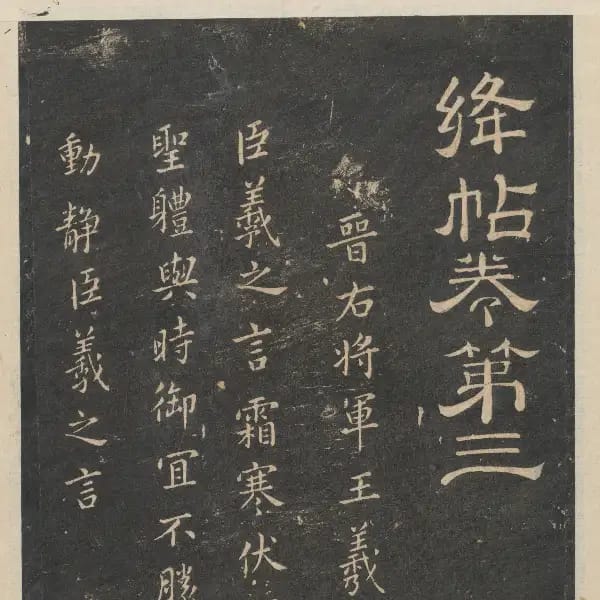 絳帖卷第三
晉右將軍王羲
臣羲之言霜寒伏
聖體與時御宜不勝
動靜臣羲之言